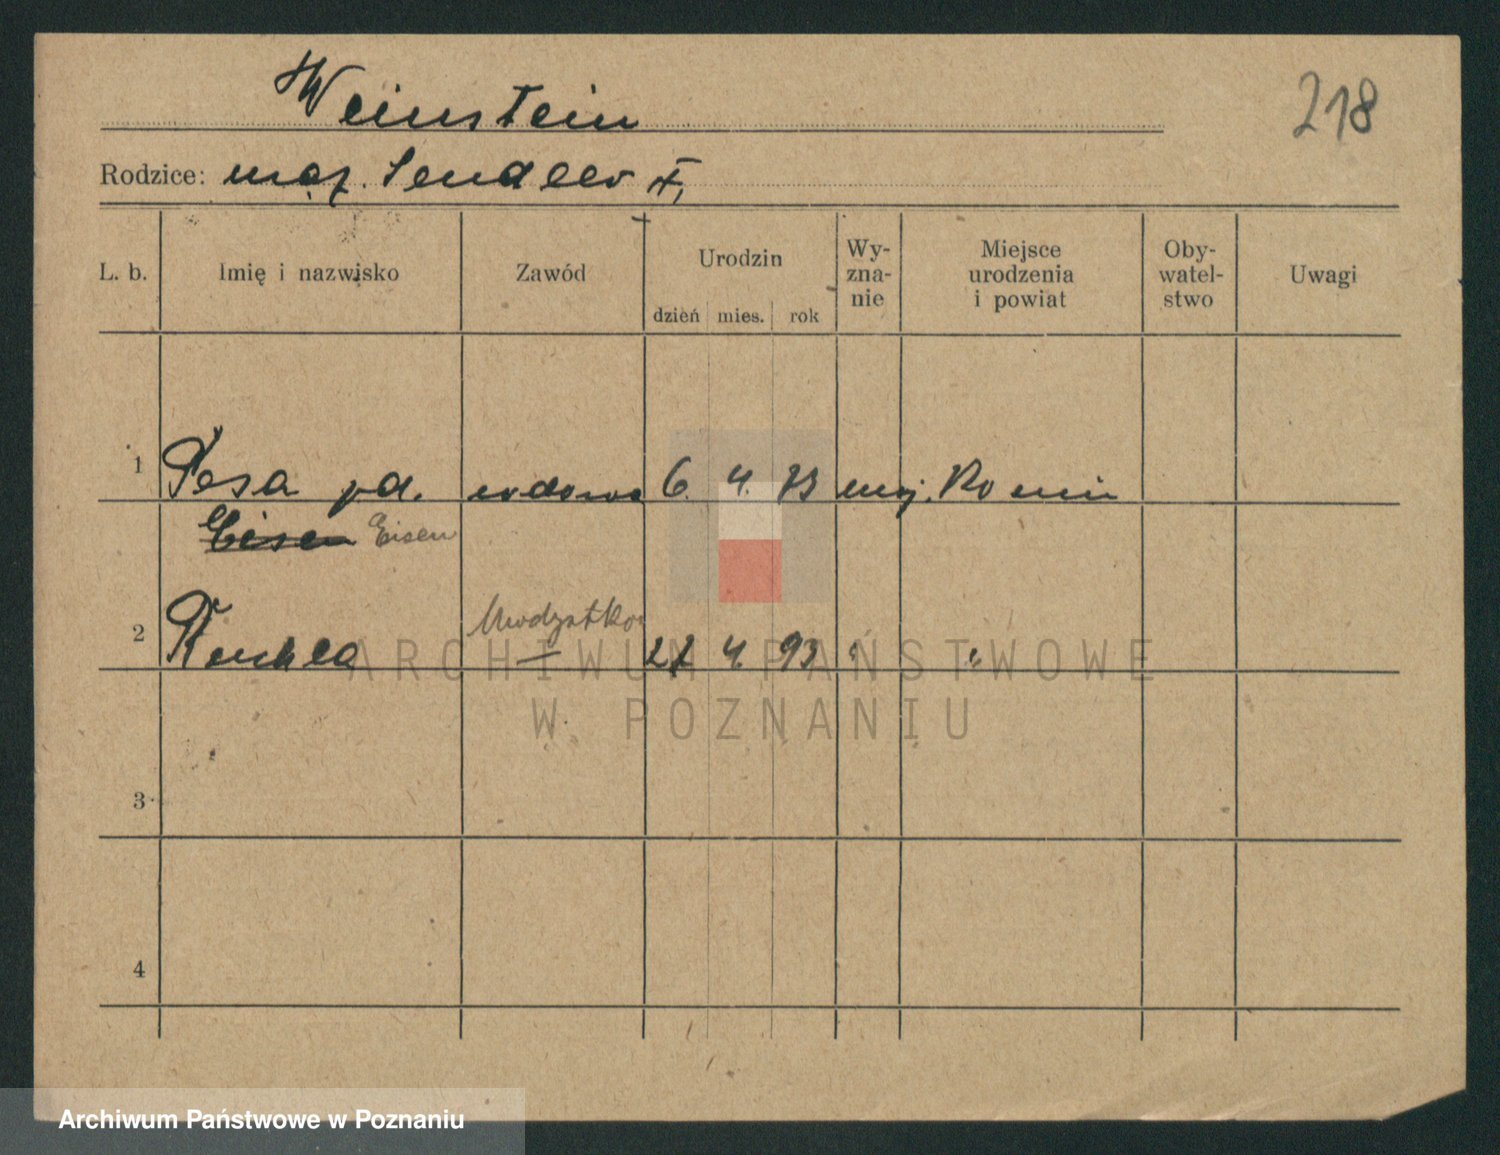 Weinstein
218
Rodzice: mąż. Sendler †,
L. b. Imię i nazwisko Zawód Urodzin dzień mies. rok Wy-zna-nie Miejsce urodzenia i powiat Oby-watel-stwo Uwagi
1 Pesa pd. wdowa 6. 4. 73 moj. Konin
Eisen Eisen
Modystka
2 Ruchla — 27 4. 93 " "
3
4
ARCHIWUM PAŃSTWOWE
W POZNANIU
Archiwum Państwowe w Poznaniu